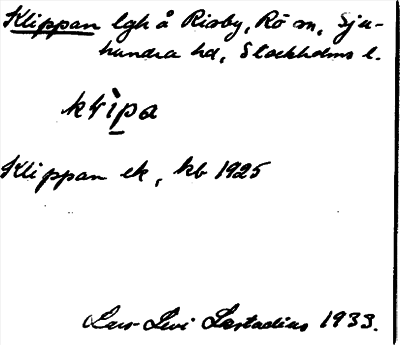 Klippan lgh å Risby, Rö sn, Sju-
hundra hd, Stockholms l.
klìpa
Klippan ek, kb 1925
Lars-Levi Læstadius 1933.